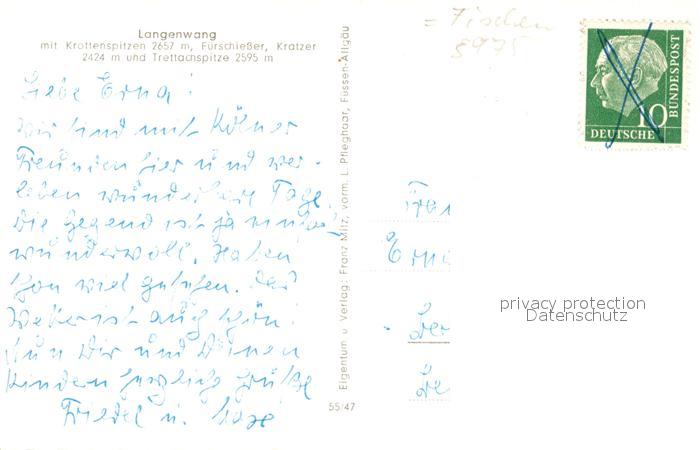 Langenwang
mit Krottenspitzen 2657 m, Fürschießer, Kratzer
2424 m und Trettachspitze 2595 m
Liebe Erna!
Wir sind mit Kölner
Freunden hier und ver-
leben wunderbare Tage.
Die Gegend ist ja
wundervoll. Haben
schon viel gesehen. Das
Wetter ist auch schön.
Nun Dir und Deinen
Kindern herzliche Grüße
Friedel u.
Eigentum u. Verlag: Franz Milz, vorm. L. Pfleghaar, Füssen-Allgäu
55/47
= Fischen
8975
10
DEUTSCHE
BUNDESPOST
Frau
Erna
privacy protection
Datenschutz